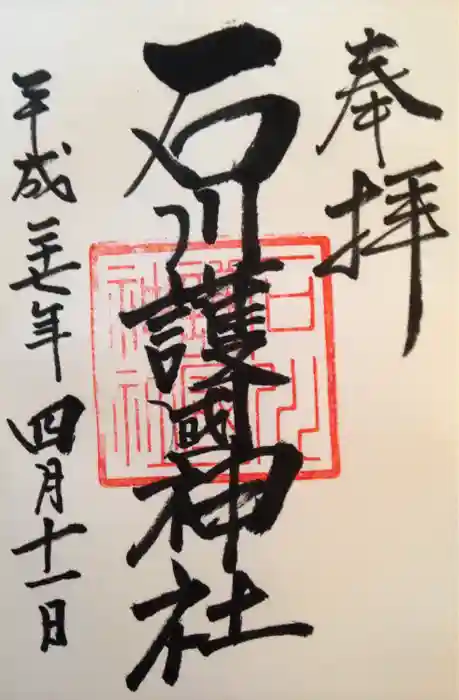 奉拝
石川護國神社
平成二十七年四月十一日
石川護國神社